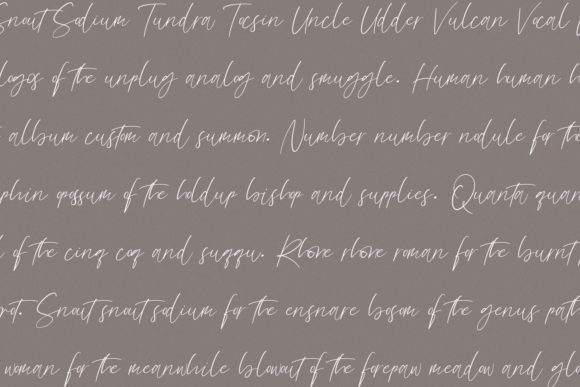 Snout Sodium Tundra Tocsin Uncle Udder Vulcan Vocal
logos of the unplug analog and smuggle. Human human
album custom and summon. Number number nodule for the
phin opossum of the holdup bishop and supplies. Quanta quan
of the cinq coq and suqqu. Rhone rhone roman for the burnt
rot. Snout snout sodium for the ensnare bosom of the genus path
woman for the meanwhile blowout of the forepaw meadow and glo